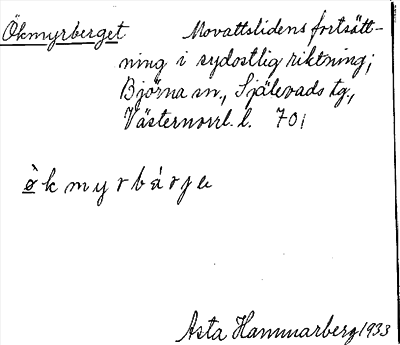 Ökmyrberget Movattslidens fortsätt-
ning i sydostlig riktning;
Björna sn., Själevads tg.,
Västernorrl. l. 70;
ø̀kmyrbárje
Asta Hammarberg 1933